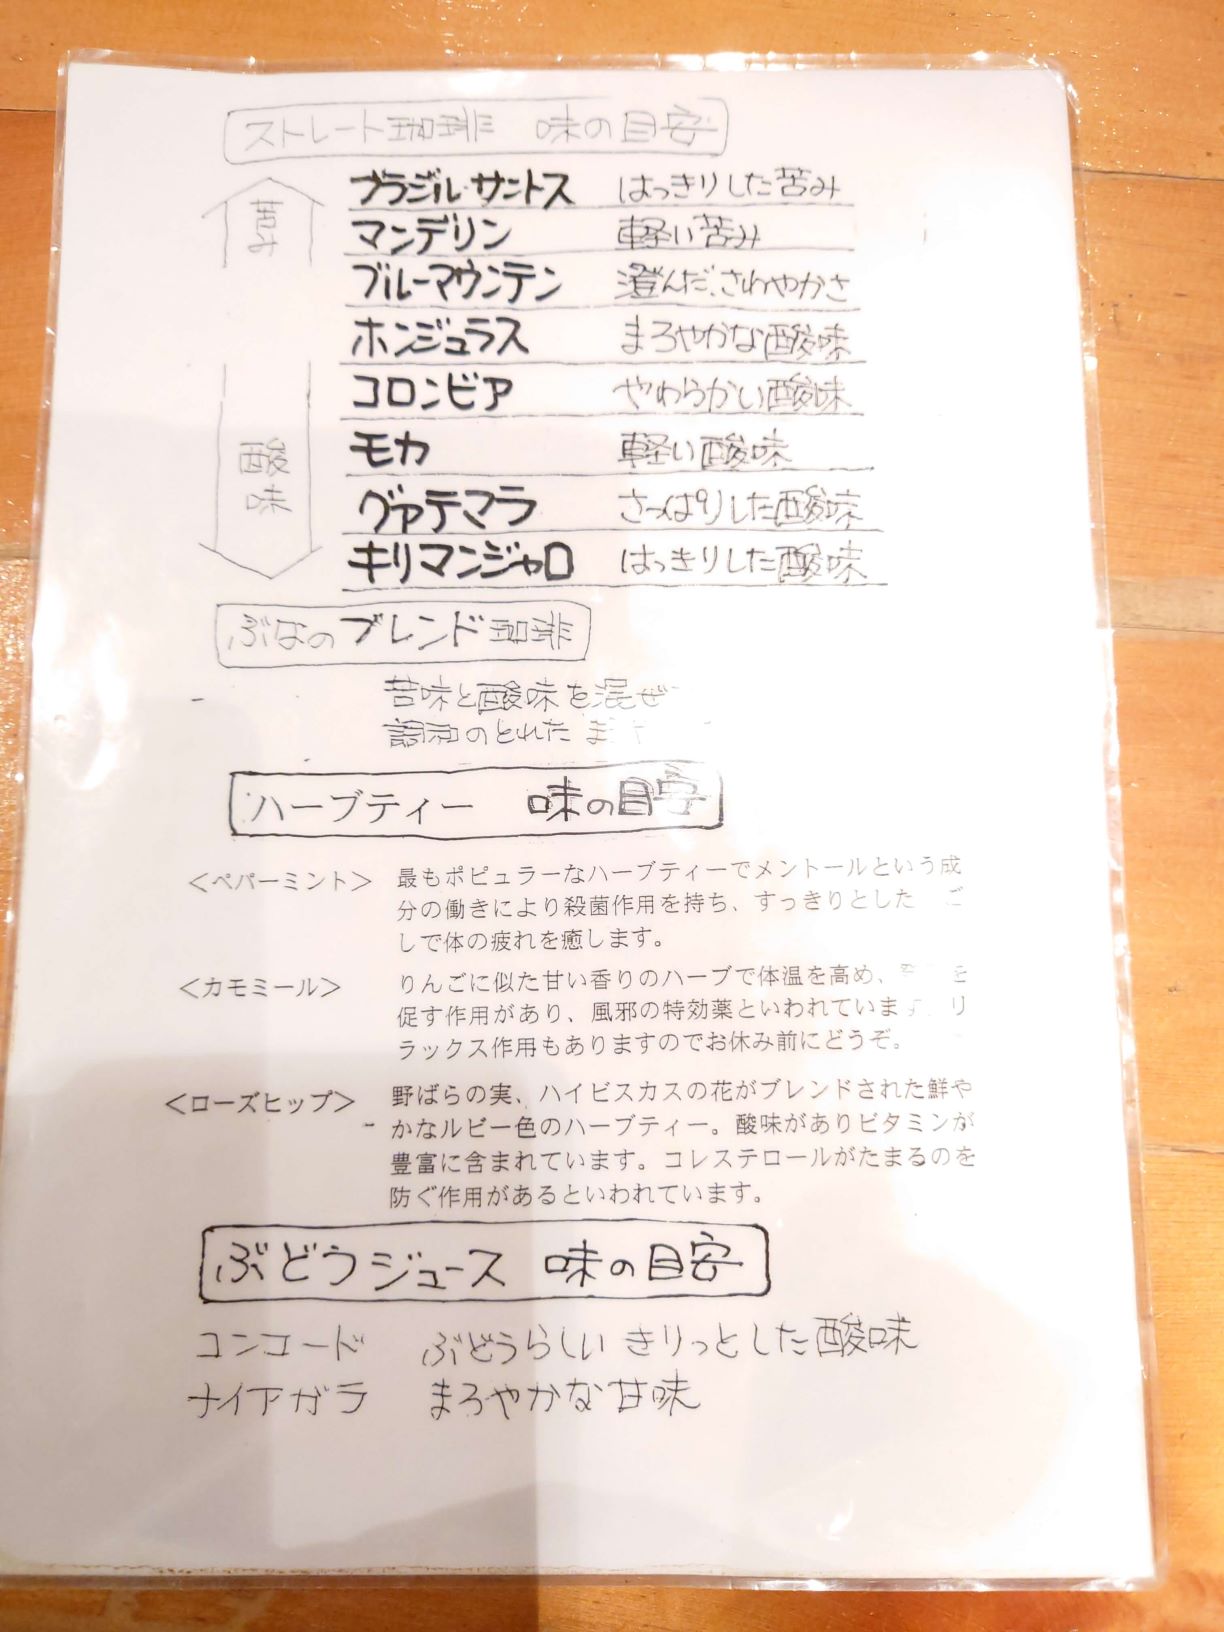 ストレート珈琲 味の目安
苦み
ブラジル・サントス はっきりした苦み
マンデリン 軽い苦み
ブルーマウンテン 澄んだ、さわやかさ
ホンジュラス まろやかな酸味
コロンビア やわらかい酸味
酸味
モカ 軽い酸味
グァテマラ さっぱりした酸味
キリマンジャロ はっきりした酸味
ぶなのブレンド珈琲
苦味と酸味を混ぜ
調和のとれた
ハーブティー 味の目安
<ペパーミント> 最もポピュラーなハーブティーでメントールという成
分の働きにより殺菌作用を持ち、すっきりとした ご
しで体の疲れを癒します。
<カモミール> りんごに似た甘い香りのハーブで体温を高め、 を
促す作用があり、風邪の特効薬といわれていま リ
ラックス作用もありますのでお休み前にどうぞ。
<ローズヒップ> 野ばらの実、ハイビスカスの花がブレンドされた鮮や
かなルビー色のハーブティー。酸味がありビタミンが
豊富に含まれています。コレステロールがたまるのを
防ぐ作用があるといわれています。
ぶどうジュース 味の目安
コンコード ぶどうらしい きりっとした酸味
ナイアガラ まろやかな甘味